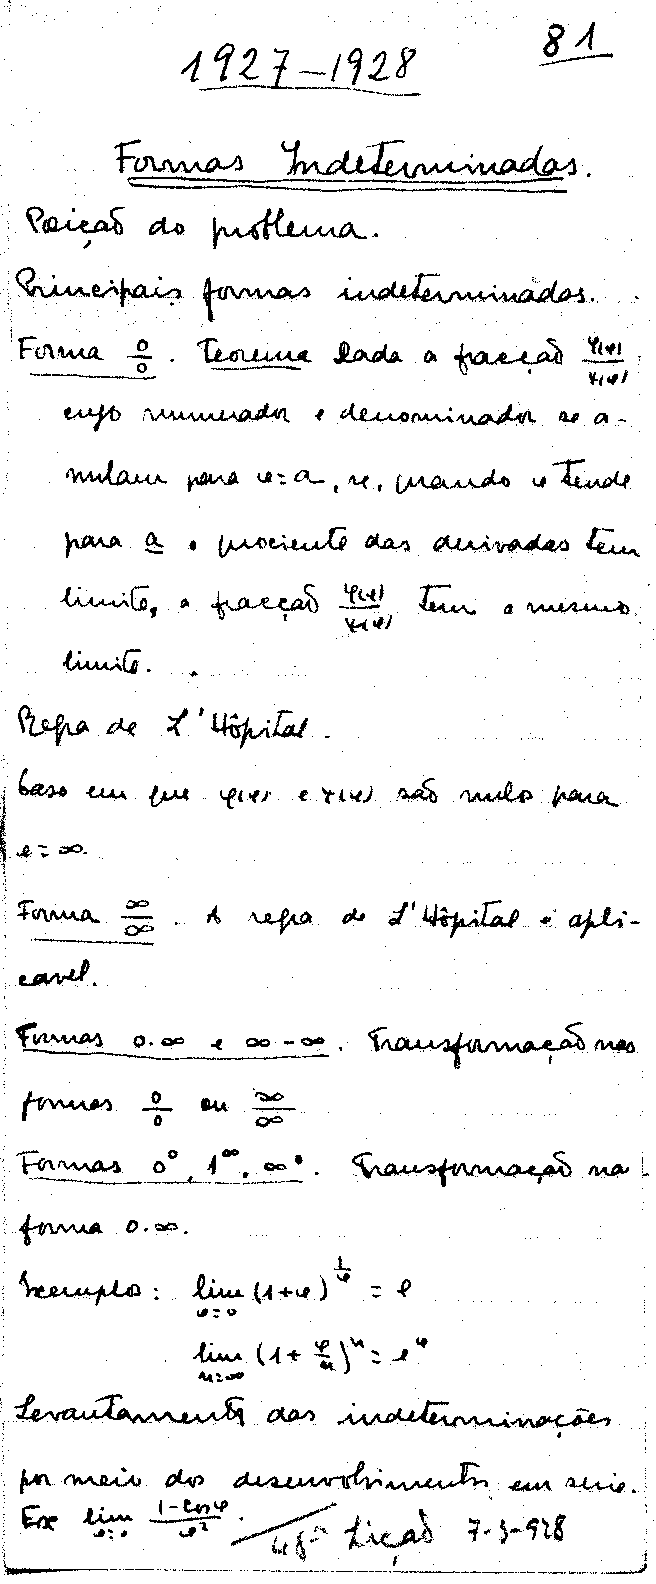 81
1927-1928
Formas Indeterminadas.
Posição do problema.
Principais formas indeterminadas.
Forma 0/0. Teorema Dada a fracção φ(x)/ψ(x)
cujo numerador e denominador se a-
nulam para x=a, se, quando x tende
para a o quociente das derivadas tem
limite, a fracção φ(x)/ψ(x) tem o mesmo
limite.
Regra de L'Hôpital.
Caso em que φ(x) e ψ(x) são nulos para
x=∞.
Forma ∞/∞. A regra de L'Hôpital é apli-
cavel.
Formas 0.∞ e ∞-∞. Transformação nas
formas 0/0 ou ∞/∞
Formas 0⁰, 1^∞, ∞⁰. Transformação na
forma 0.∞.
Exemplos: lim x=0 (1+x)^(1/x) = e
lim n=∞ (1+x/n)^n = e^x
Levantamento das indeterminações
por meio dos desenvolvimentos em serie.
Ex lim x=0 (1-cos x)/x².
48ª Lição 7-3-928